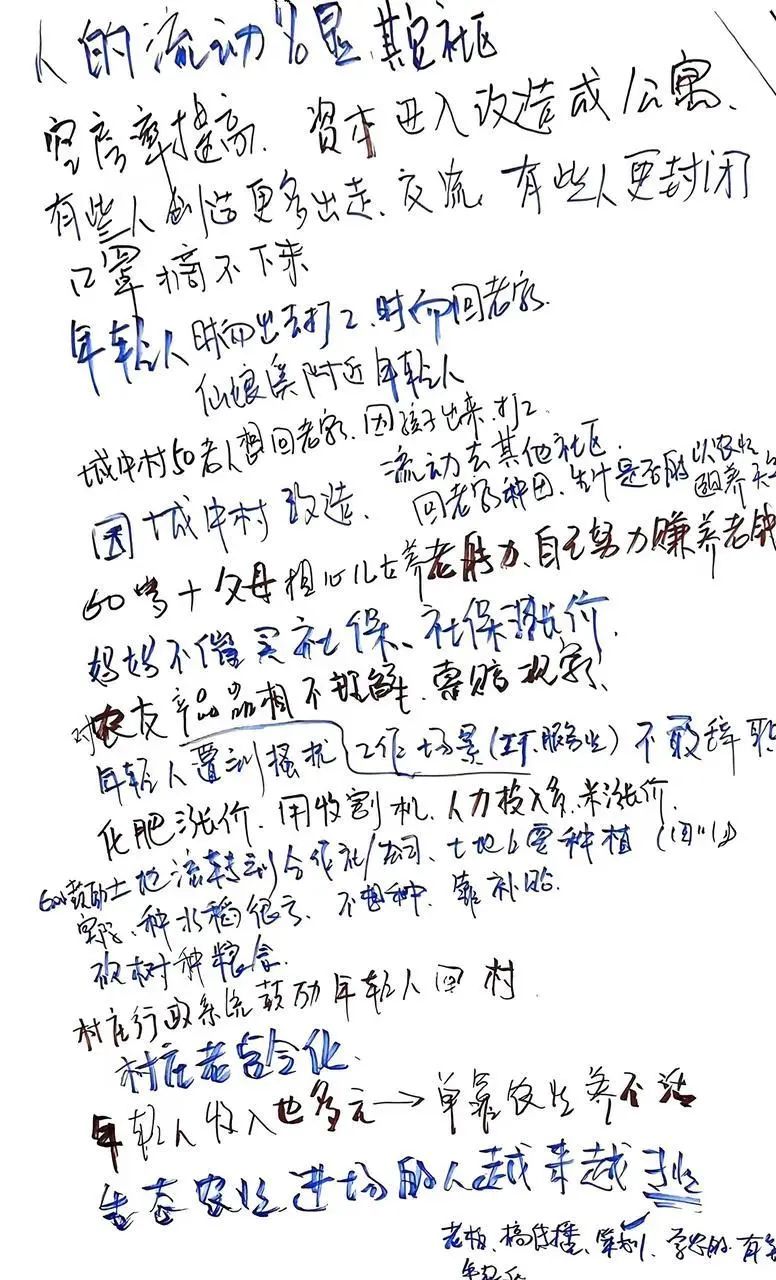 人的流动%显,其它社区
空房率提高、資本进入改造成公寓、
有些人创造更多出走、交流,有些人更封闭
口罩摘不下来
年轻人时而出去打工、时而回老家.
仙娘溪附近年轻人
城中村50老人想回老家、因孩子出来打工
因城中村改造、流动去其他社区.
回老家种田、生计是否能以农业
养
60岁+父母担心儿女养老能力、自己努力赚养老钱
妈妈不催买社保、社保涨价.
对农友产品品相不理解、索赔、
年轻人遭到搔扰 工作场景(工厂、服务业)不敢辞职
化肥涨价、用收割机、人力投入多、米涨价.
鼓励土地流转到合作社/公司、土地上要种植(四川)
种水稻很亏、不想种、靠补贴.
砍树种粮食.
村庄行政系统鼓励年轻人回村
村庄老龄化.
年轻人收入也多元→单靠农业养不活
生态农业进场的人越来越
老板、搞直播、
年轻